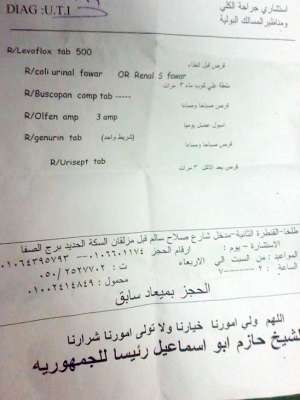 DIAG :U.T.I
استشاري جراحة الكلي
ومناظير المسالك البولية
R/Levoflox tab 500
قرص قبل الغداء
R/coli urinal fawar OR Renal S fawar
ملعقة علي كوب ماء ٣ مرات
R/Buscopan comp tab -----
قرص صباحا ومساا
R/Olfen amp 3 amp
امبول عضل يوميا
R/genurin tab (شريط واحد)
قرص صباحا ومساا
R/Urisept tab
قرص بعد الاكل ٣ مرات
طلخا-القنطرة الثانية-مدخل شارع صلاح سالم قبل مزلقان السكة الحديد برج الصفا
الاستشارة - يوم :
ارقام الحجز
المواعيد : من السبت الي الاربعاء
ت : ٠٥٠/٢٥٢٧٧٠٢
الساعة : ٢ ------ ٧
محمول : ٠١٠٠٢٤١٤٨٤٩
الحجز بميعاد سابق
اللهم ولي امورنا خيارنا ولا تولى امورنا شرارنا
الشيخ حازم ابو اسماعيل رئيسا للجمهوريه